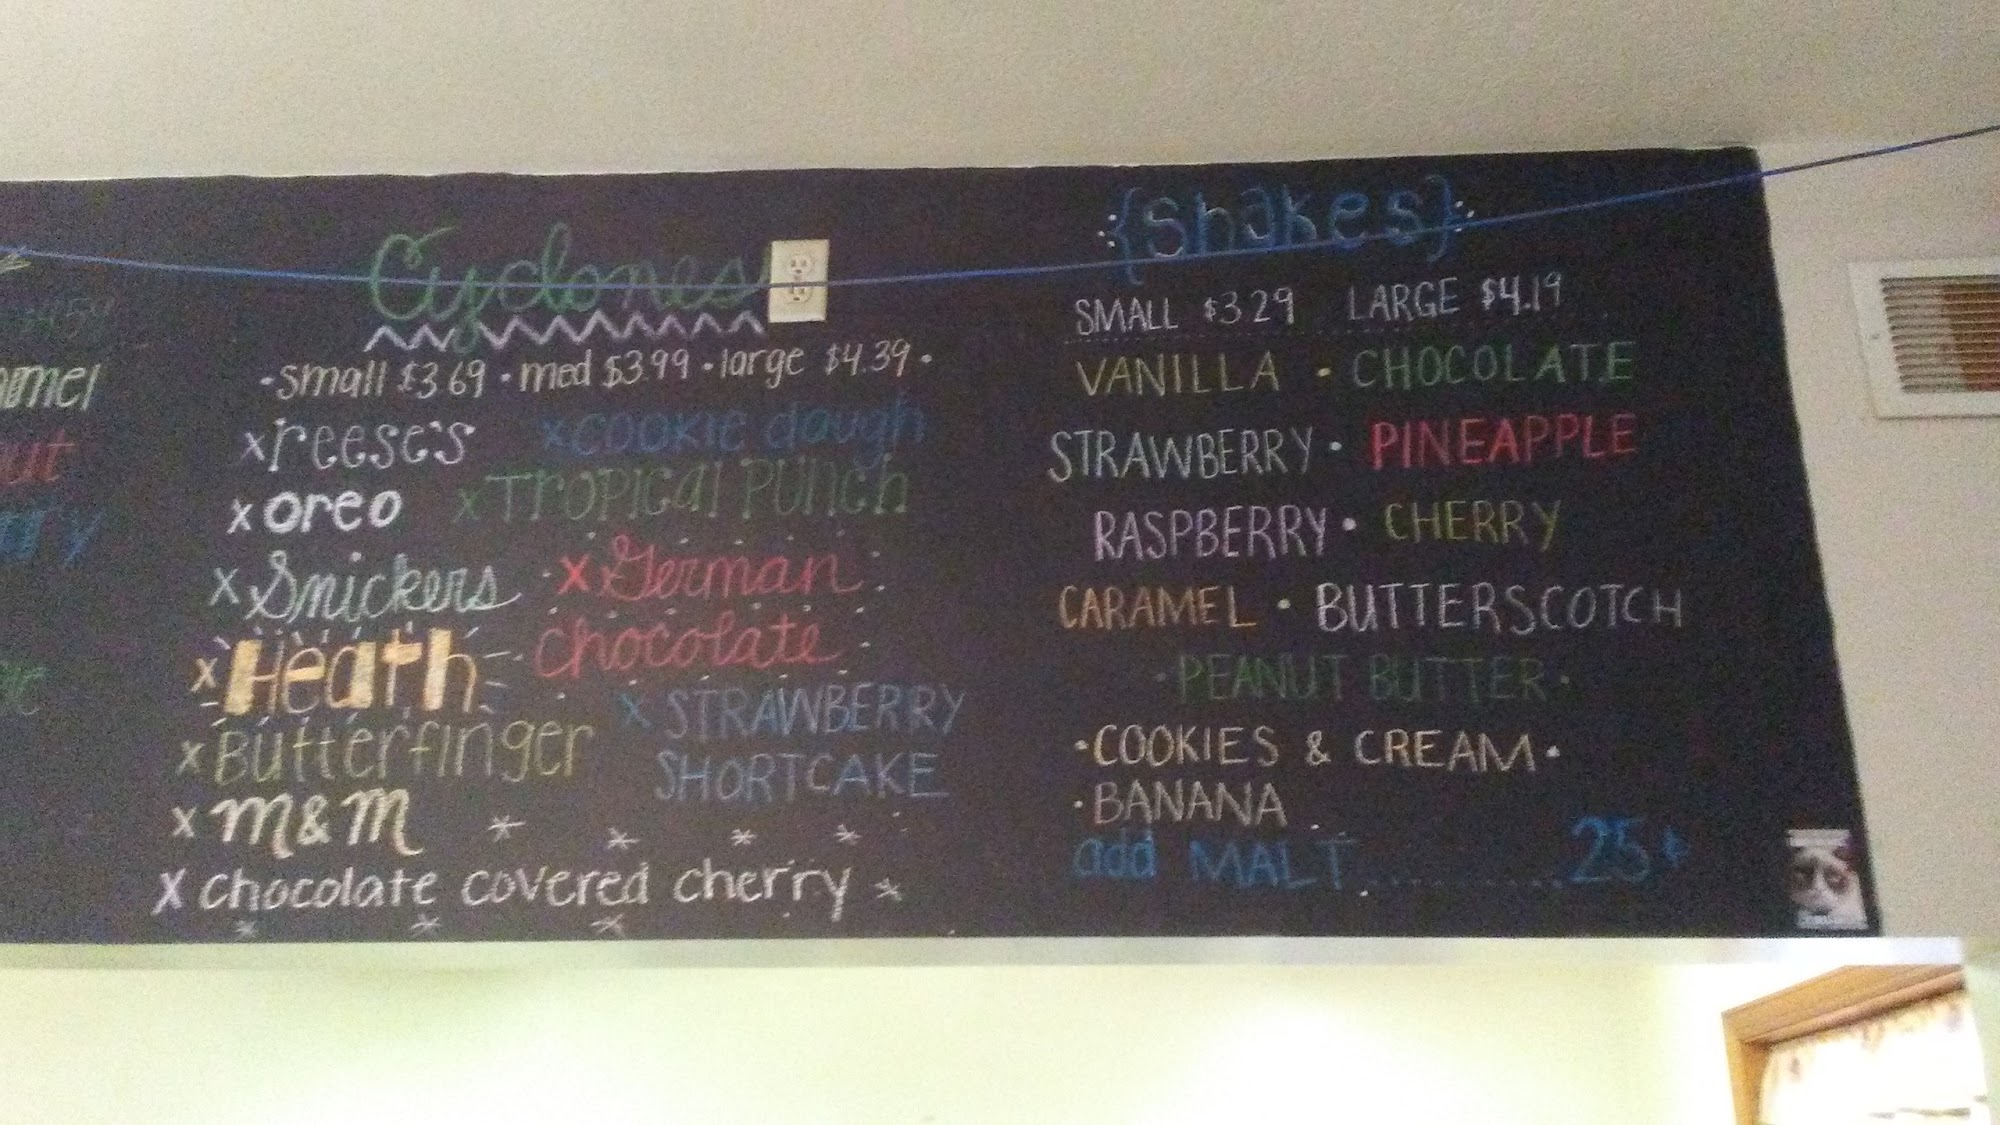 Cyclones
• small $3.69 • med $3.99 • large $4.39 •
x reese's
x cookie dough
x oreo
x Tropical Punch
x Snickers
x German
chocolate
x Heath
x Butterfinger
x STRAWBERRY
SHORTCAKE
x m&m
x chocolate covered cherry
{Shakes}
SMALL $3.29 LARGE $4.19
VANILLA • CHOCOLATE
STRAWBERRY • PINEAPPLE
RASPBERRY • CHERRY
CARAMEL • BUTTERSCOTCH
• PEANUT BUTTER •
• COOKIES & CREAM •
• BANANA
add MALT ........... 25¢